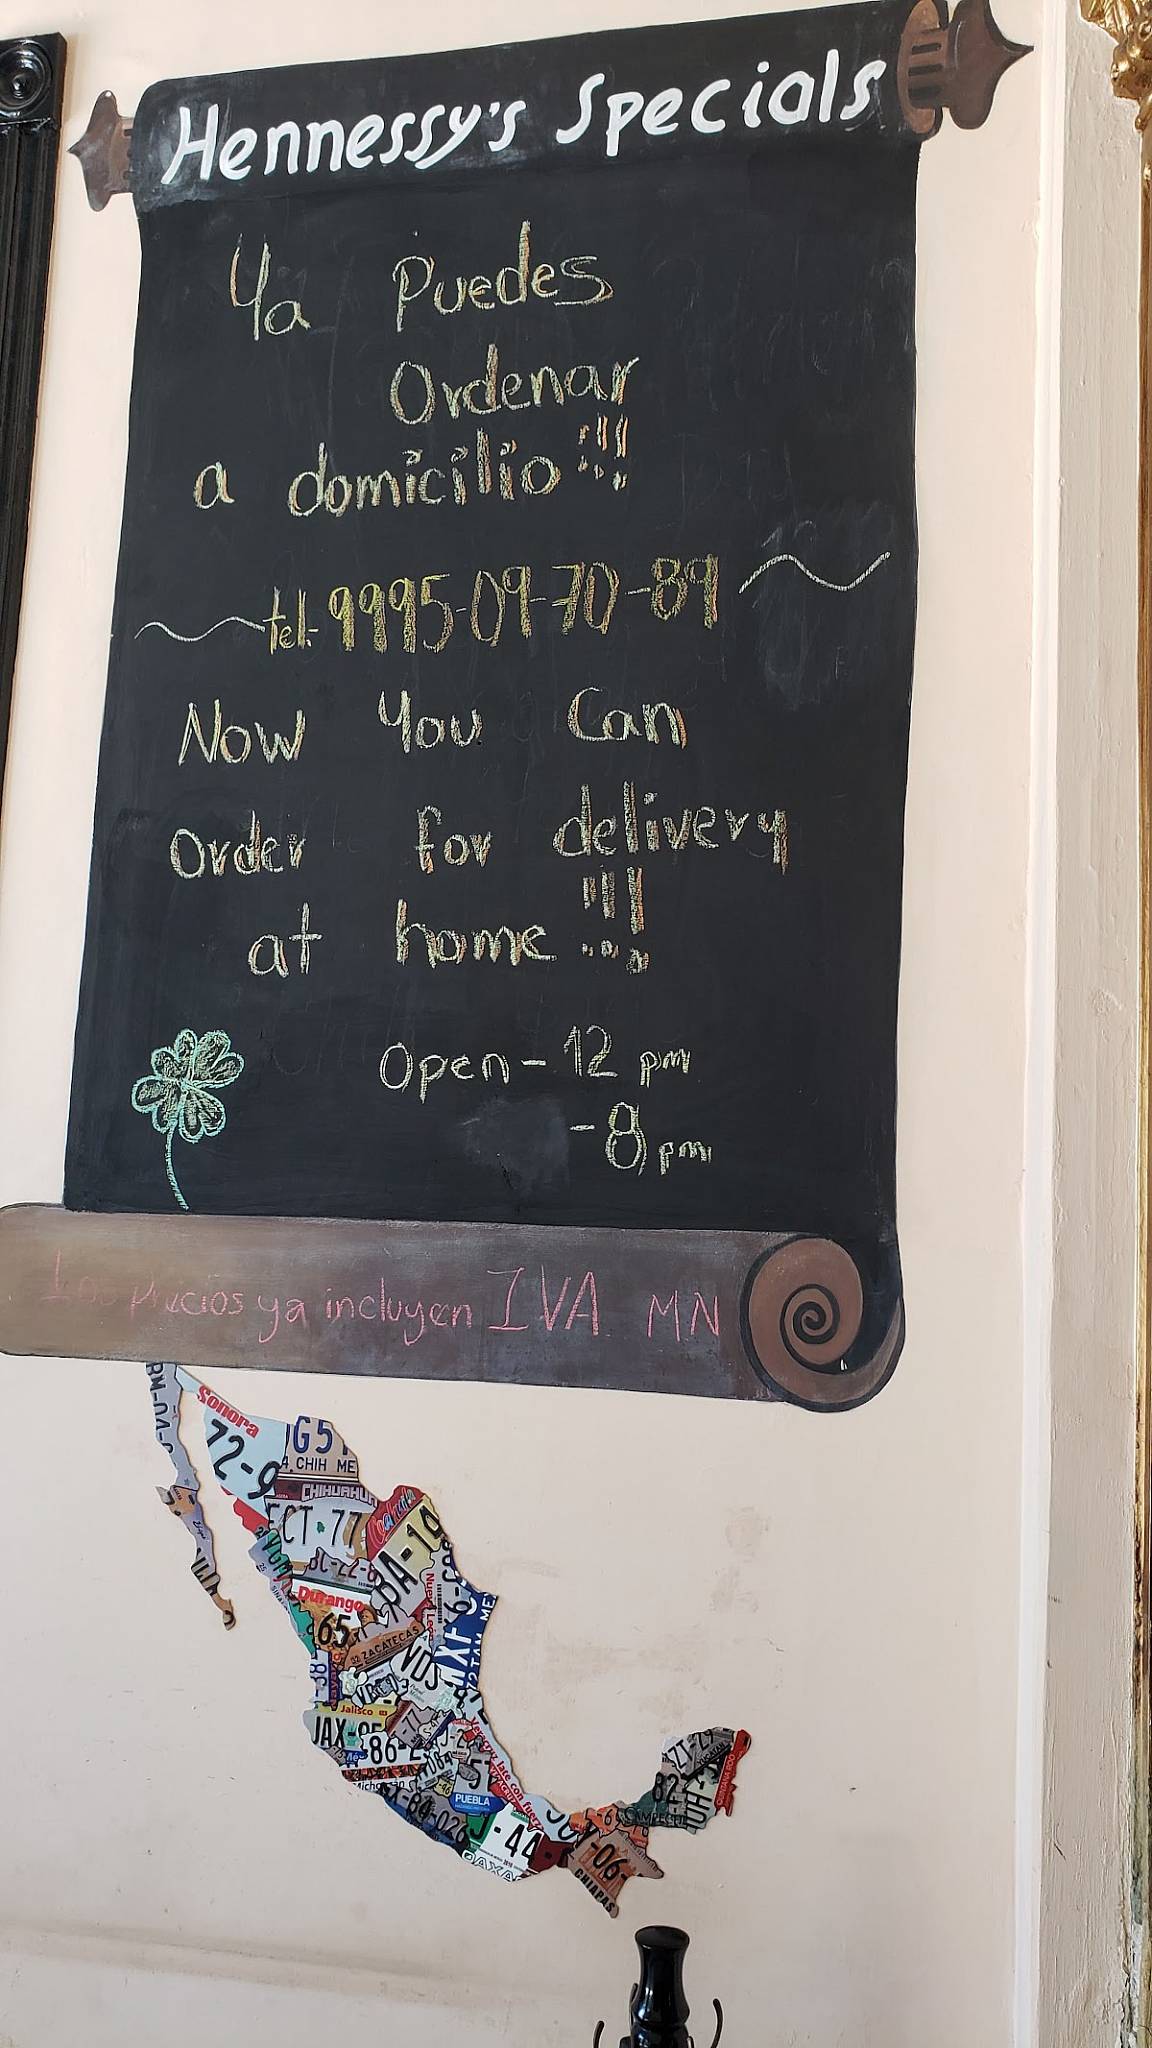 Hennessy's Specials
Ya Puedes
Ordenar
a domicilio !!!
tel:- 9995-09-70-89
Now You Can
Order for delivery
at home !!!!
Open - 12 pm
- 8 pm
Los precios ya incluyen IVA MN
Sonora
72-9
G5
CHIH ME
CHIHUAHUA
ECT 77
Coahuila
BA-19
Durango
65
Nuevo León
32 ZACATECAS
VDJ
Jalisco
JAX-
86-2
Michoacan
PUEBLA
026
J-44
OAXA
CAMPECHE
82
ZT-29
QUINTANA ROO
-06-
CHIAPAS